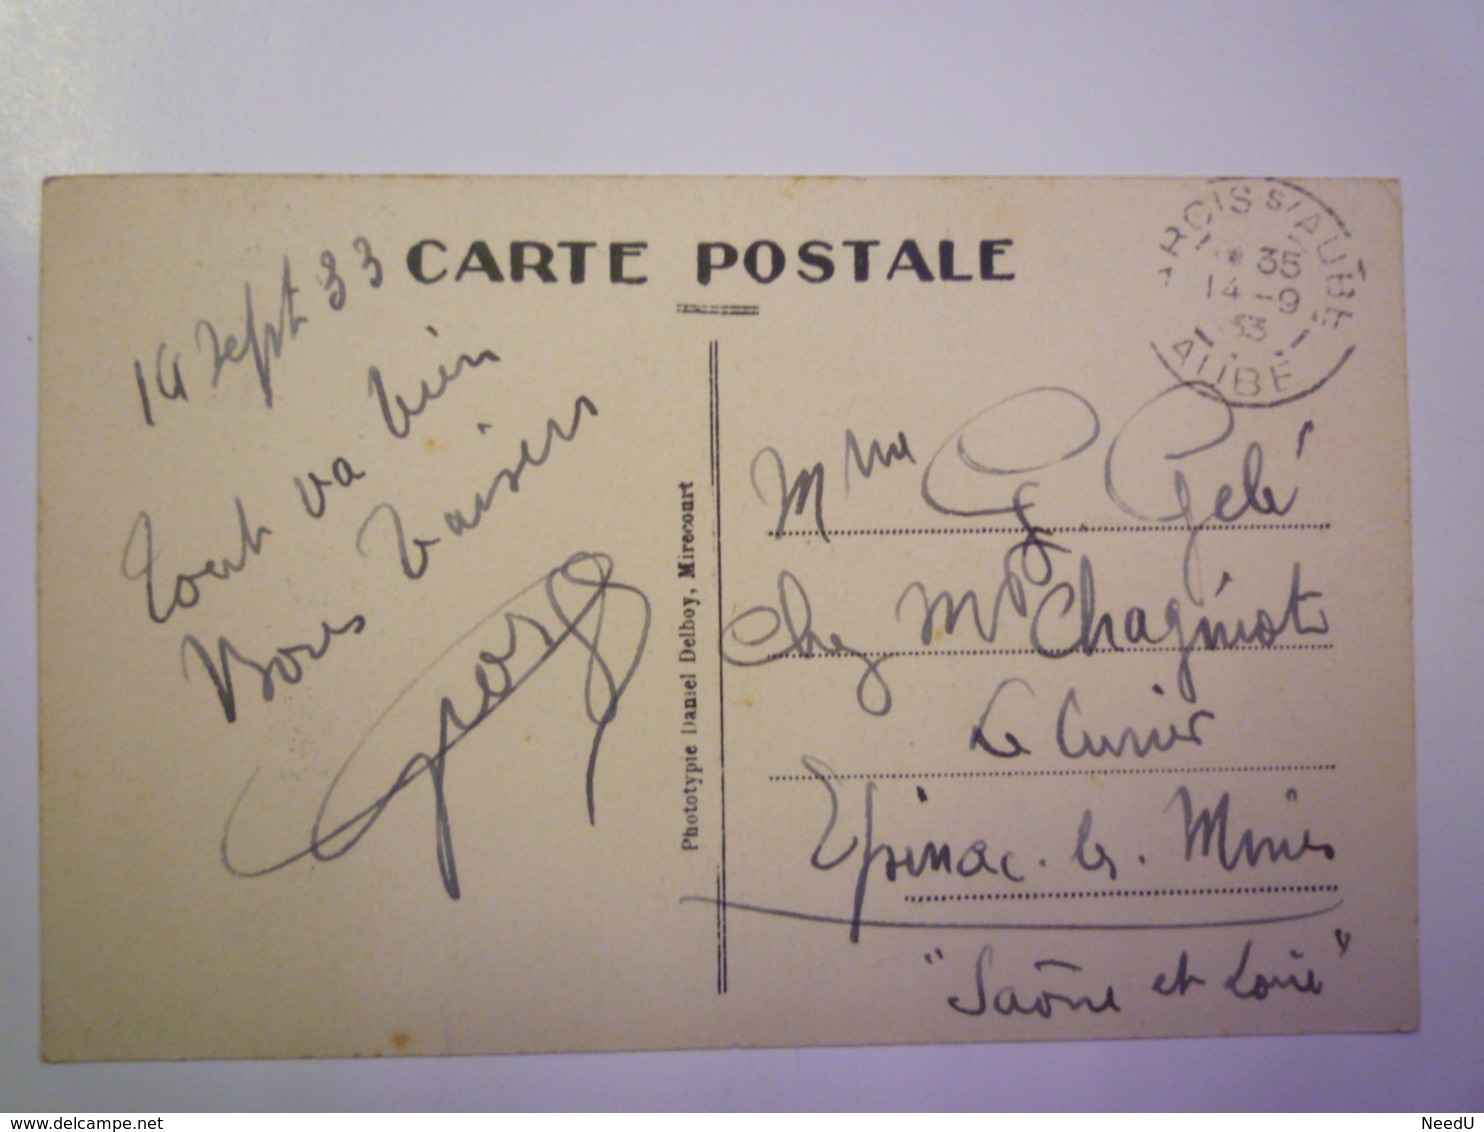 CARTE POSTALE
14 Sept 33
Tout va bien
Bons baisers
Georges
Phototypie Daniel Delboy, Mirecourt
ARCIS S/AUBE
* 35
14 -9
33
AUBE
Mme G. Gelé
Chez Mr Chagniot
Le Curier
Epinac-les-Mines
"Saône et Loire"
© delcampe.net
NeedU